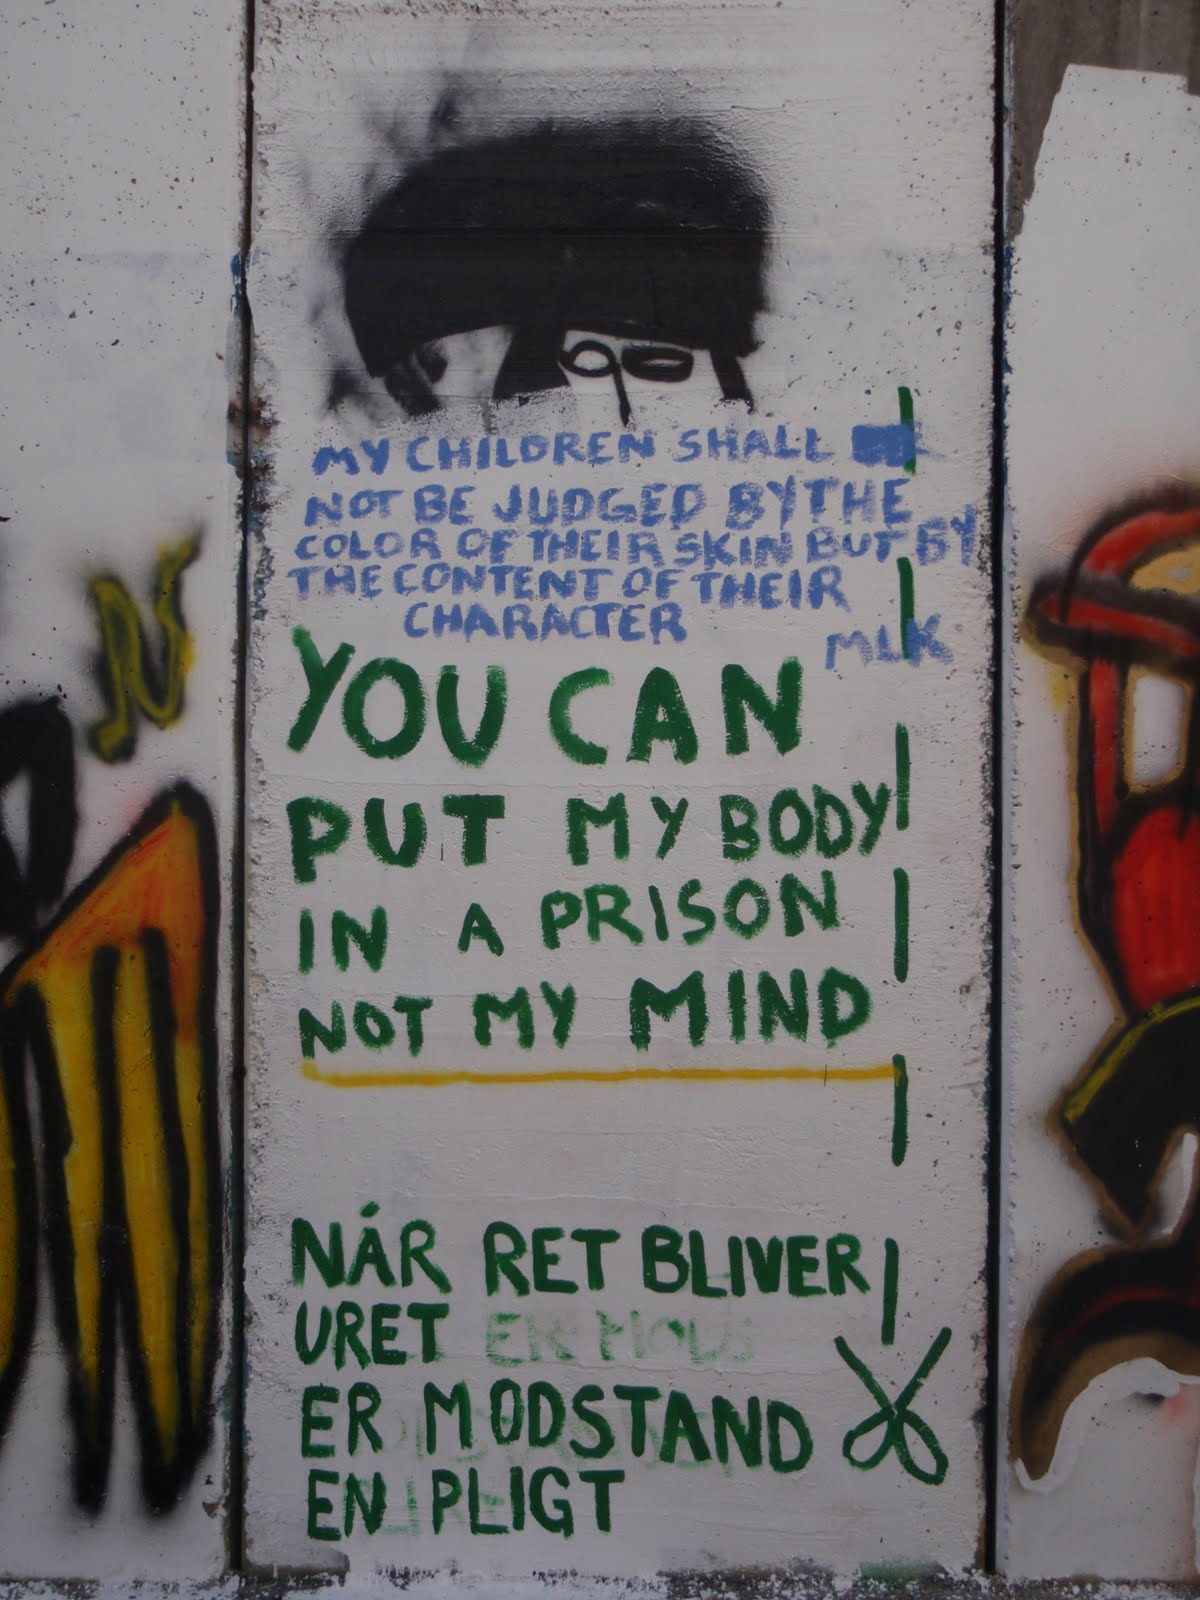 MY CHILDREN SHALL
NOT BE JUDGED BY THE
COLOR OF THEIR SKIN BUT BY
THE CONTENT OF THEIR
CHARACTER
MLK
YOU CAN
PUT MY BODY
IN A PRISON
NOT MY MIND
NÁR RET BLIVER
URET
ER MODSTAND
EN PLIGT
N